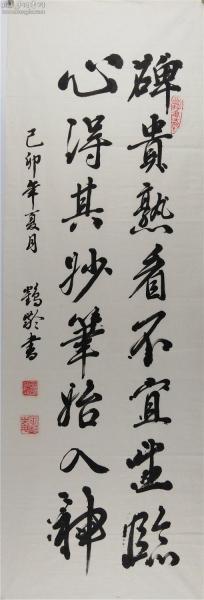 碑貴熟看不宜生臨
心得其妙筆始入神
己卯年夏月 鶴齡書